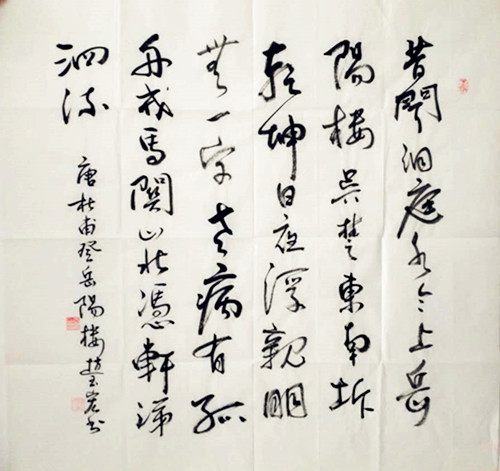 昔聞洞庭水今上岳
陽楼吳楚東南坼
乾坤日夜浮親朋
無一字老病有孤
舟戎馬関山北憑軒涕
泗流
唐杜甫登岳陽楼趙玉书